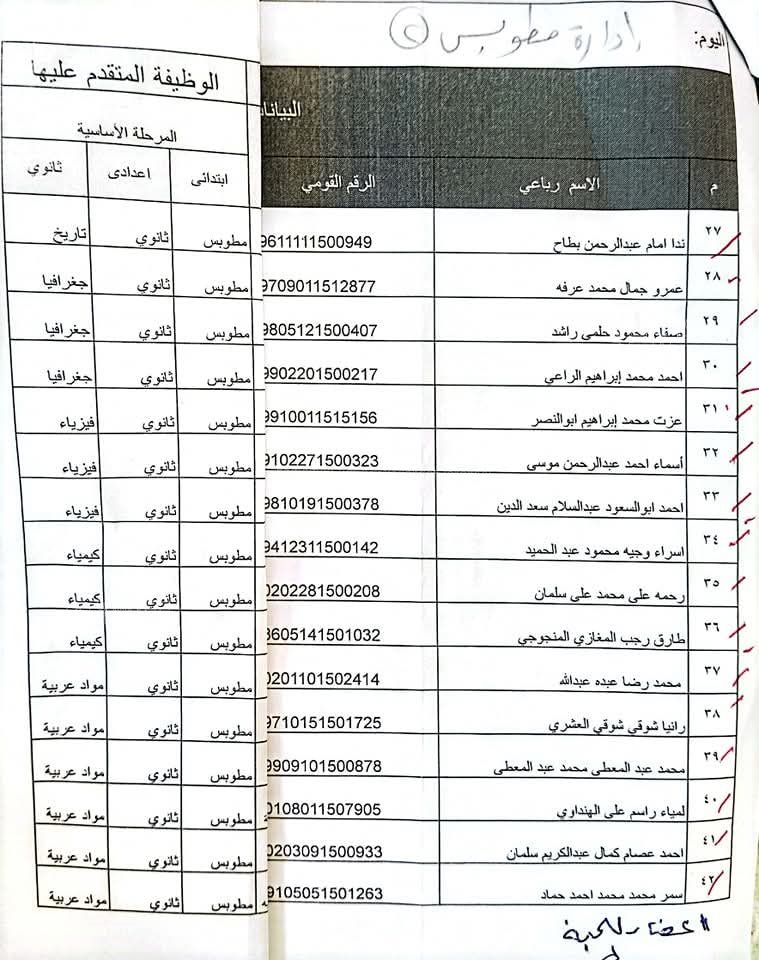 اليوم:
إدارة مطوبس (٢)
البيانات
الوظيفة المتقدم عليها
المرحلة الأساسية
م الاسم رباعي الرقم القومي ابتدائى اعدادى ثانوي
٢٧ ندا امام عبدالرحمن بطاح 9611111500949 مطوبس ثانوي تاريخ
٢٨ عمرو جمال محمد عرفه 9709011512877 مطوبس ثانوي جغرافيا
٢٩ صفاء محمود حلمى راشد 9805121500407 مطوبس ثانوي جغرافيا
٣٠ احمد محمد إبراهيم الراعي 9902201500217 مطوبس ثانوي جغرافيا
٣١ عزت محمد إبراهيم ابوالنصر 9910011515156 مطوبس ثانوي فيزياء
٣٢ أسماء احمد عبدالرحمن موسى 9102271500323 مطوبس ثانوي فيزياء
٣٣ احمد ابوالسعود عبدالسلام سعد الدين 9810191500378 مطوبس ثانوي فيزياء
٣٤ اسراء وجيه محمود عبد الحميد 9412311500142 مطوبس ثانوي كيمياء
٣٥ رحمه على محمد على سلمان 0202281500208 مطوبس ثانوي كيمياء
٣٦ طارق رجب المغازي المنجوجي 8605141501032 مطوبس ثانوي كيمياء
٣٧ محمد رضا عبده عبدالله 0201101502414 مطوبس ثانوي مواد عربية
٣٨ رانيا شوقي شوقي العشري 9710151501725 مطوبس ثانوي مواد عربية
٣٩ محمد عبد المعطى محمد عبد المعطى 9909101500878 مطوبس ثانوي مواد عربية
٤٠ لمياء راسم على الهنداوي 0108011507905 مطوبس ثانوي مواد عربية
٤١ احمد عصام كمال عبدالكريم سلمان 0203091500933 مطوبس ثانوي مواد عربية
٤٢ سمر محمد محمد احمد حماد 9105051501263 مطوبس ثانوي مواد عربية
اعضاء اللجنة